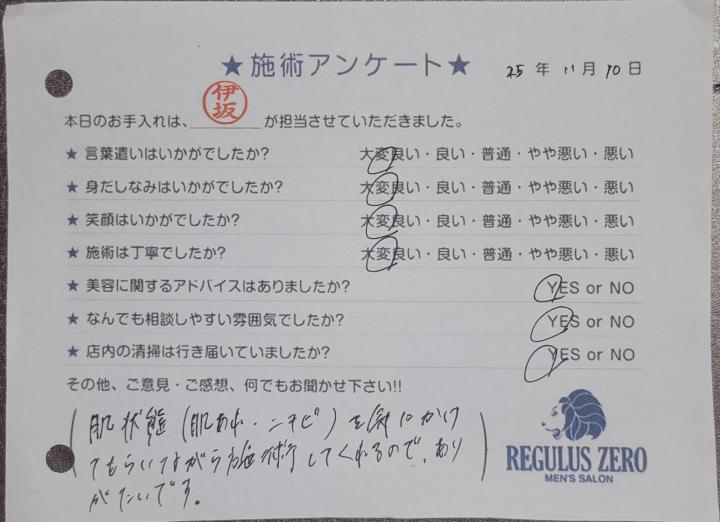 ★施術アンケート★
25年 11月10日
本日のお手入れは、伊坂が担当させていただきました。
★ 言葉遣いはいかがでしたか? 大変良い・良い・普通・やや悪い・悪い
★ 身だしなみはいかがでしたか? 大変良い・良い・普通・やや悪い・悪い
★ 笑顔はいかがでしたか? 大変良い・良い・普通・やや悪い・悪い
★ 施術は丁寧でしたか? 大変良い・良い・普通・やや悪い・悪い
★ 美容に関するアドバイスはありましたか? YES or NO
★ なんでも相談しやすい雰囲気でしたか? YES or NO
★ 店内の清掃は行き届いていましたか? YES or NO
その他、ご意見・ご感想、何でもお聞かせ下さい!!
肌状態(肌あれ・ニキビ)を気にかけ
てもらいながら施術してくれるので、あり
がたいです。
REGULUS ZERO
MEN'S SALON